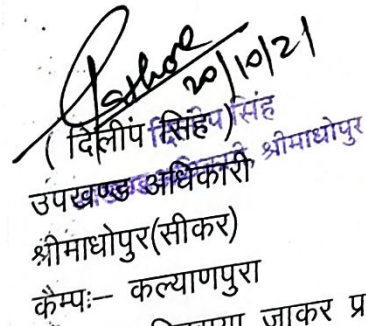 20/10/21
(दिलीप सिंह)
दिलीप सिंह
उपखण्ड अधिकारी
श्रीमाधोपुर
श्रीमाधोपुर(सीकर)
कैम्पः– कल्याणपुरा
जाकर प्र